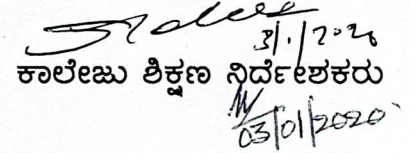 3/1/2020
ಕಾಲೇಜು ಶಿಕ್ಷಣ ನಿರ್ದೇಶಕರು
03/01/2020